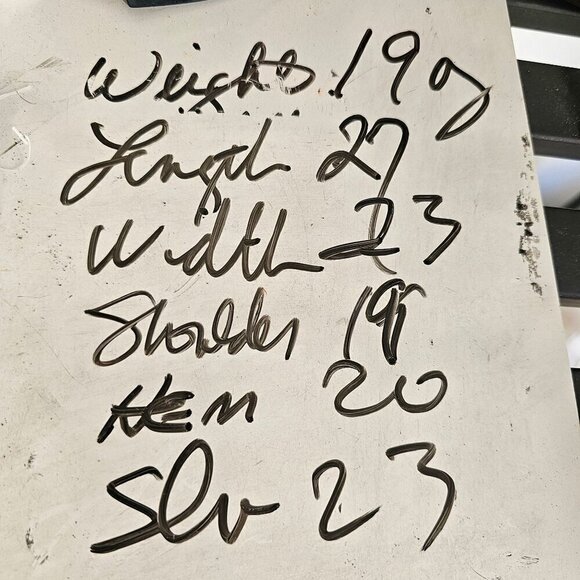 Weight 19g
Length 27
Width 23
Shoulder 19
HEM 20
Slv 23